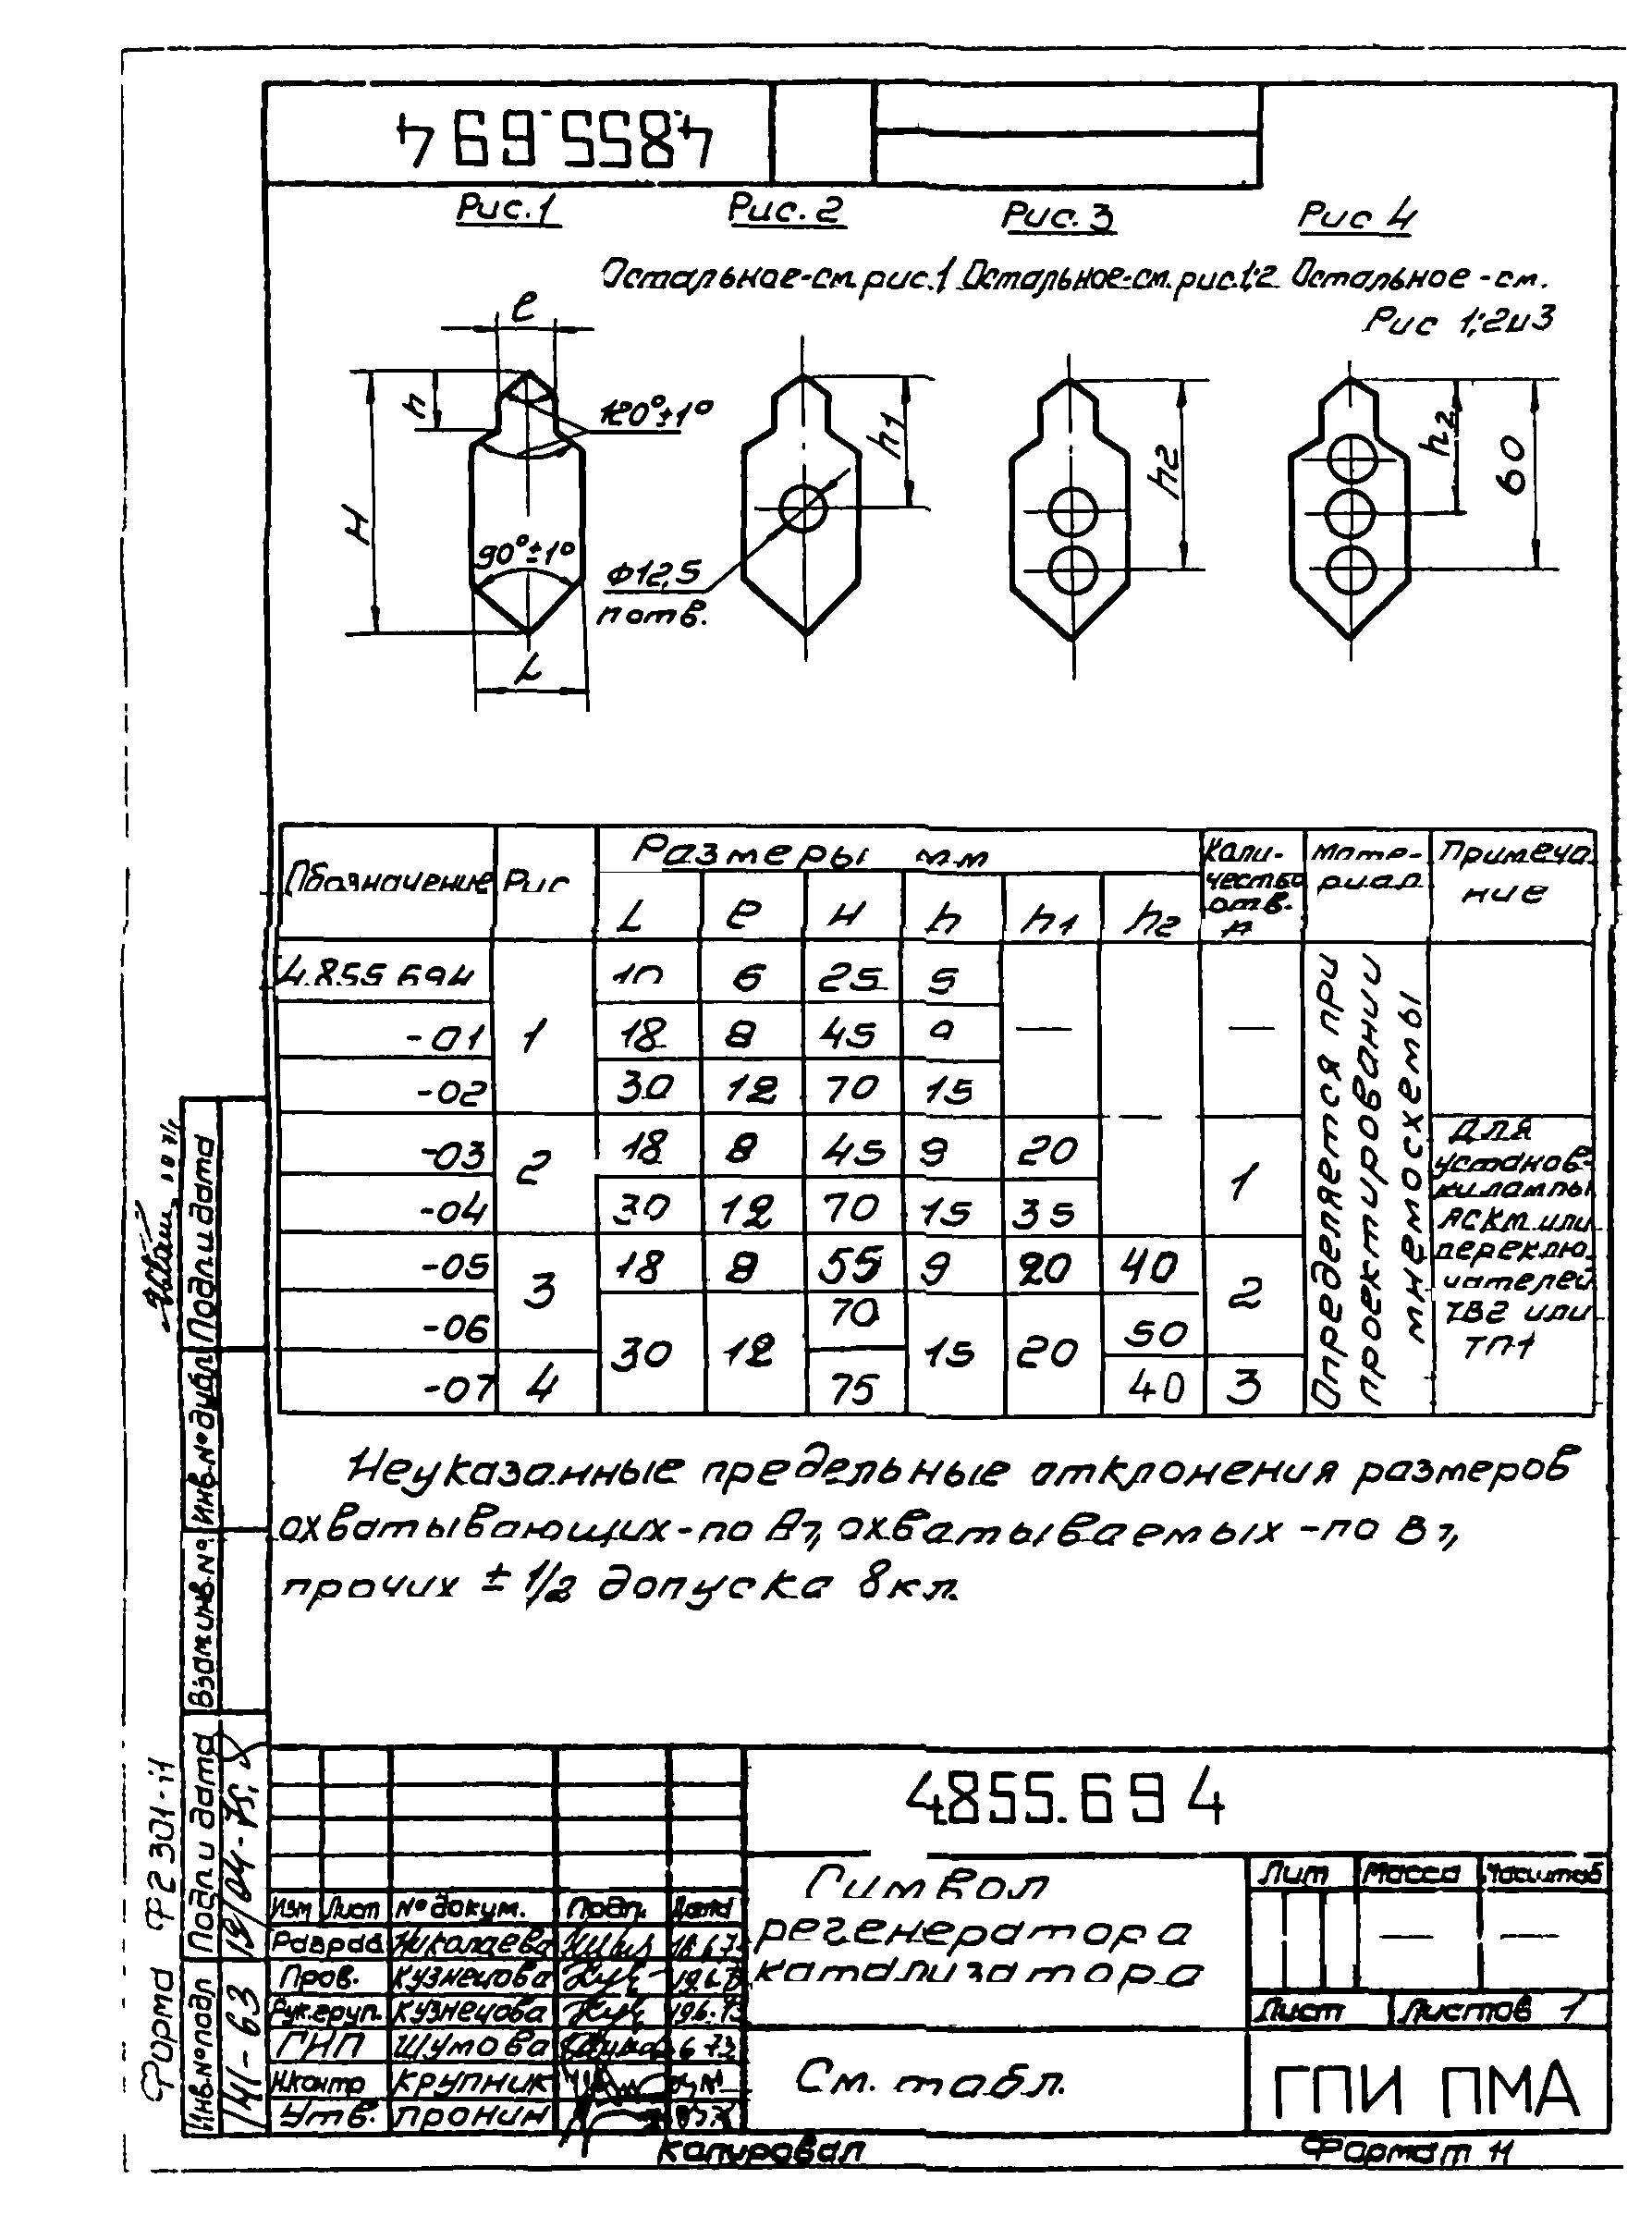 4.855.694
Рис.1
Рис.2
Рис.3
Рис 4
Остальное-см.рис.1
Остальное-см.рис.1;2
Остальное-см.
Рис 1;2и3
e
h
H
120°±1°
90°±1°
L
h1
Ф12,5
n отв.
h2
h2
60
Обозначение
Рис
Размеры мм
L
e
H
h
h1
h2
Коли-
чество
отв.
n
Мате-
риал
Примеча
ние
4.855 694
1
10
6
25
5
-01
18
8
45
9
—
—
-02
30
12
70
15
-03
2
18
8
45
9
20
1
-04
30
12
70
15
35
-05
3
18
8
55
9
20
40
2
-06
30
12
70
15
20
50
-07
4
75
40
3
Определяется при
проектировании
мнемосхемы
Для
установ-
ки лампы
АСКМ или
переклю
чателей
ТВ2 или
ТП1
Неуказанные предельные отклонения размеров
охватывающих-по А7, охватываемых-по В7,
прочих ± 1/2 допуска 8кл.
Подп.и дата
Инв.№дубл
Взам инв.№
Подп. и дата
Инв.№подл
141-63
Форма Ф2 301-11
4855.694
Символ
регенератора
катализатора
См. табл.
Лит
Масса
Масштаб
—
—
Лист
Листов 1
ГПИ ПМА
Изм
Лист
№ докум.
Подп.
Дата
Разраб
Николаева
Пров.
Кузнецова
Рук.груп.
Кузнецова
ГНП
Шумова
6 73
Н.контр
Крупник
Утв.
Пронин
Копировал
Формат 11